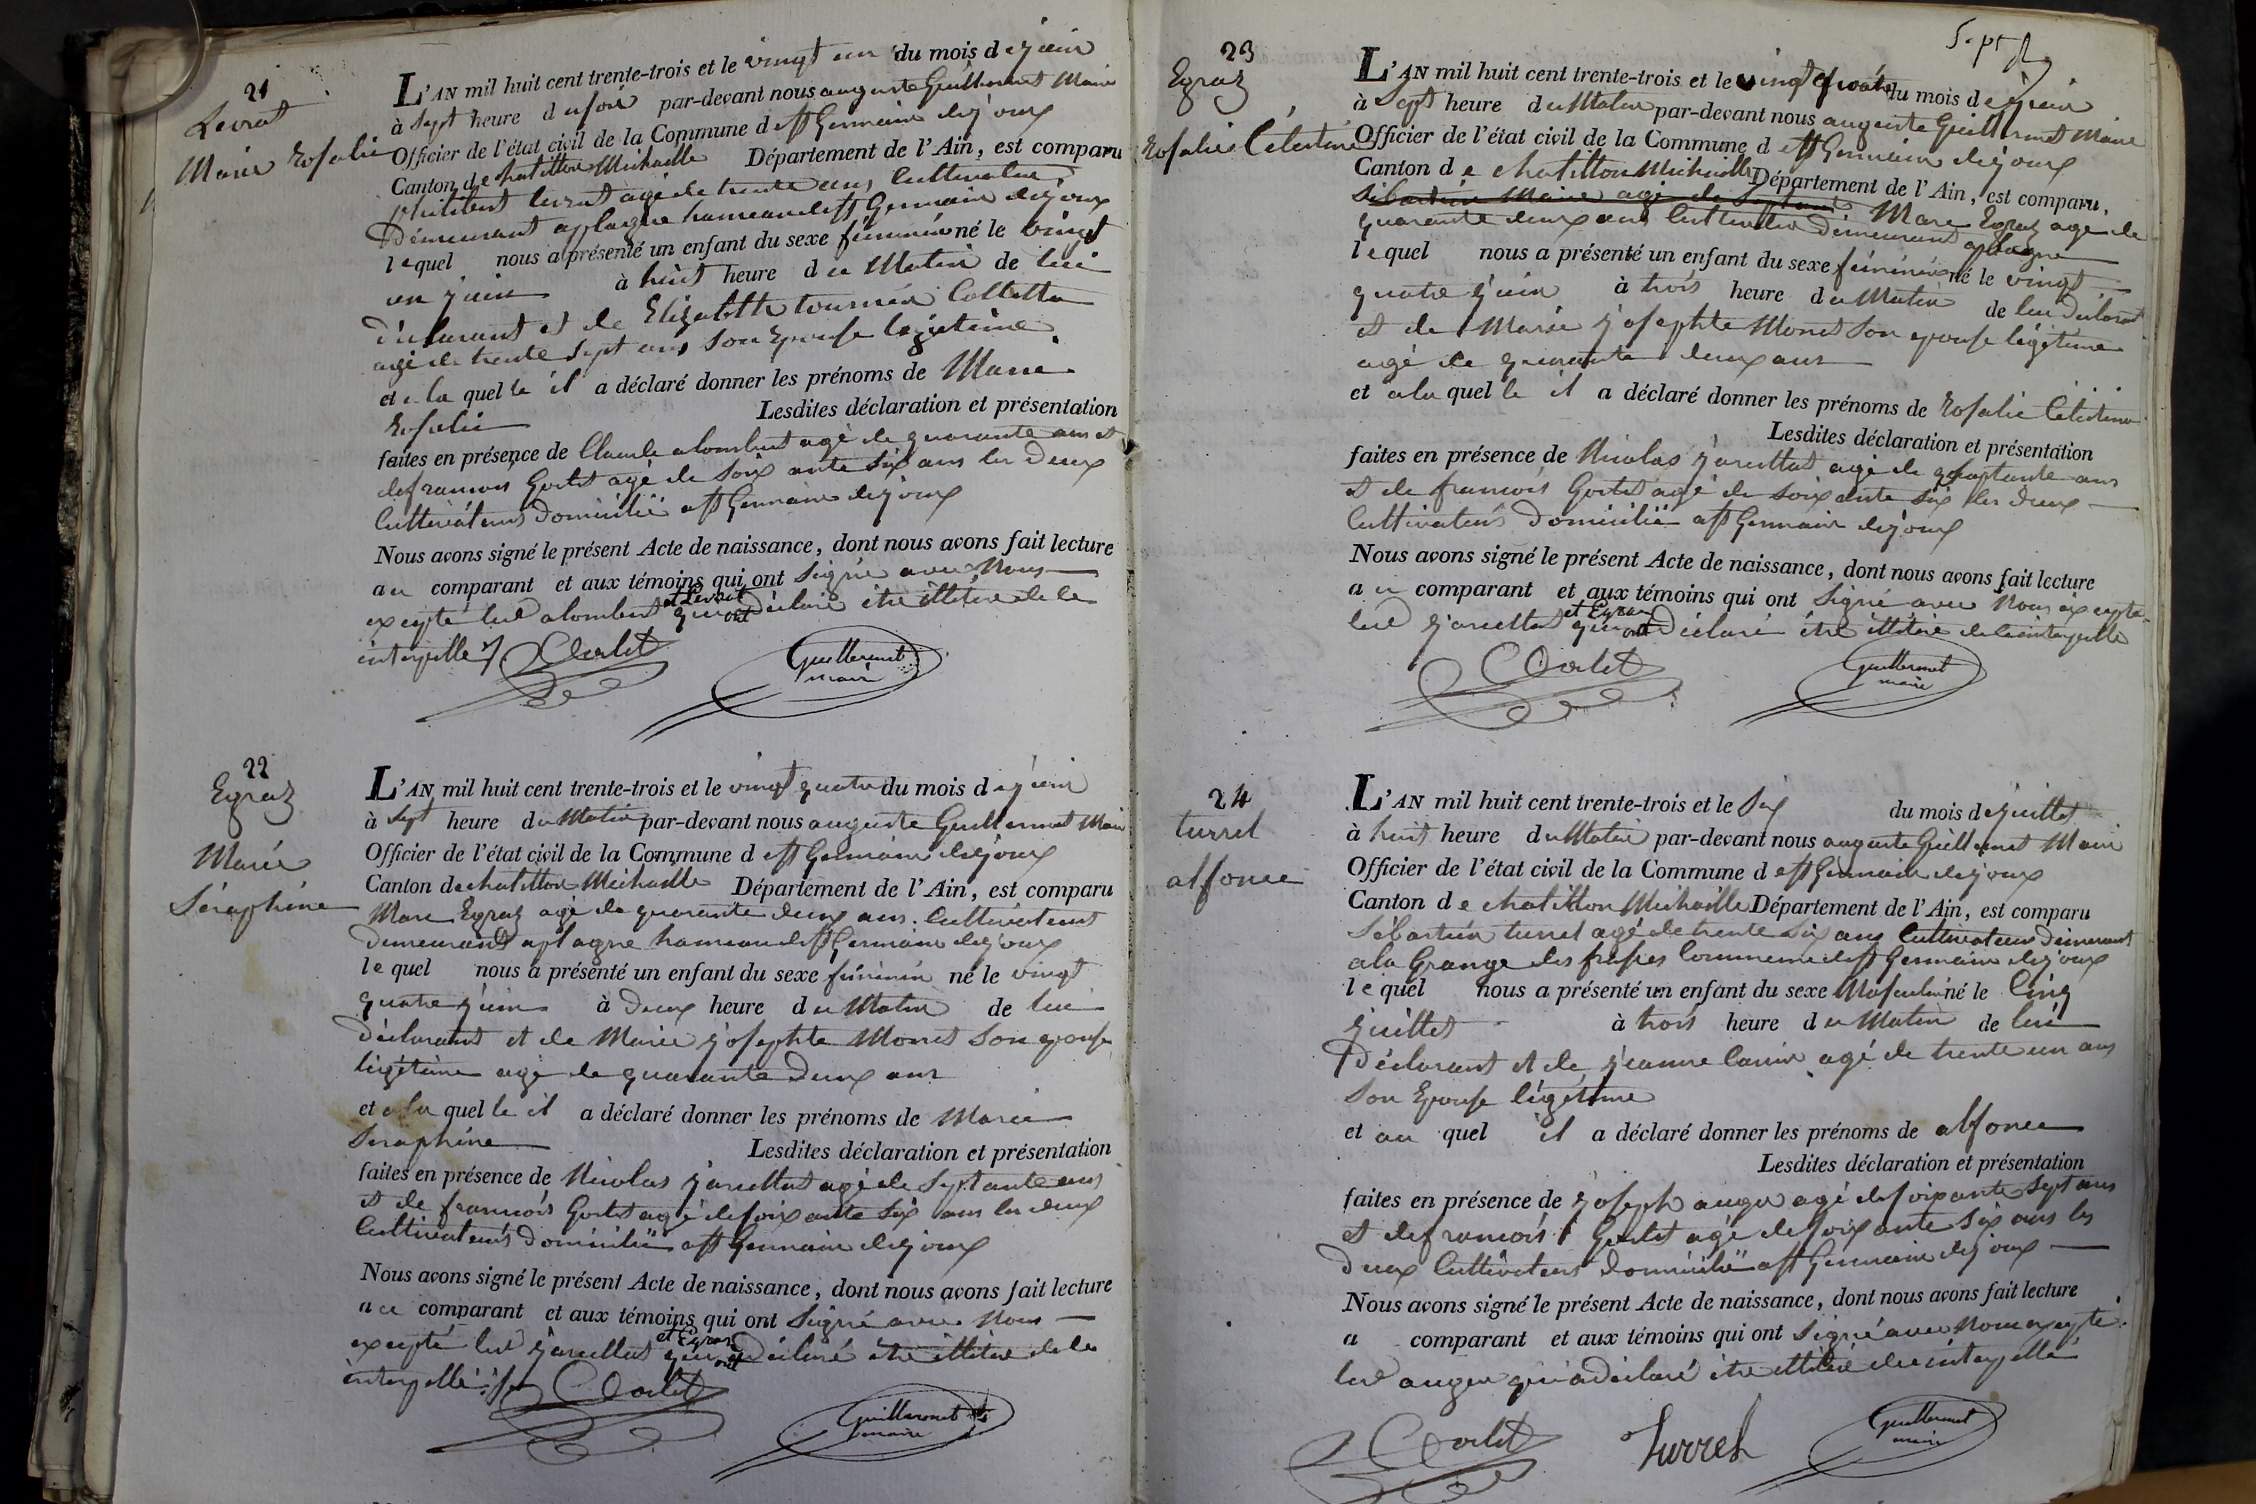 21
Levrat
Marie Rosalie
L'AN mil huit cent trente-trois et le vingt un du mois de juin
à sept heure du soir par-devant nous auguste Guillermet Maire
Officier de l'état civil de la Commune de st Germain de joux
Canton de chatillon Michaille Département de l'Ain, est comparu
philibert levrat agé de trente ans Cultivateur
Demeurant a plagne hameau de st Germain de joux
lequel nous a présenté un enfant du sexe féminin né le vingt
un juin à huit heure du Matin de lui
déclarant et de Elizabeth tournier Collette
agé de trente sept ans son Epouse légitime
et a la quelle il a déclaré donner les prénoms de Marie
Rosalie Lesdites déclaration et présentation
faites en présence de Claude alombert agé de quarante ans et
de francois Godet agé de soix ante six ans les deux
Cultivateurs Domicilié a st Germain de joux
Nous avons signé le présent Acte de naissance, dont nous avons fait lecture
au comparant et aux témoins qui ont signé avec Nous
excepté led alombert et Levrat qui ont déclaré etre illitéré de ce
interpellé
Godet Guillermet
maire
22
Egraz
Marie
Séraphine
L'AN mil huit cent trente-trois et le vingt quatre du mois de juin
à sept heure du Matin par-devant nous auguste Guillermet Maire
Officier de l'état civil de la Commune de st Germain de joux
Canton de chatillon Michaille Département de l'Ain, est comparu
Marc Egraz agé de quarante deux ans Cultivateur
Demeurant a plagne hameau de st Germain de joux
lequel nous a présenté un enfant du sexe féminin né le vingt
quatre juin à Deux heure du Matin de lui
Déclarant et de Marie josephte Monet son epouse
légitime agé de quarante Deux ans
et a la quelle il a déclaré donner les prénoms de Marie
Seraphine Lesdites déclaration et présentation
faites en présence de Nicolas jarcellat agé de septante ans
et de francois Godet agé de soix ante six ans les deux
Cultivateurs Domicilié a st Germain de joux
Nous avons signé le présent Acte de naissance, dont nous avons fait lecture
au comparant et aux témoins qui ont signé avec Nous
excepté led jarcellat et Egraz qui ont déclaré etre illitéré de ce
interpellé
Godet Guillermet
maire
Sept
23
Egraz
Rosalie Célestine
L'AN mil huit cent trente-trois et le vingt quatre du mois de juin
à Sept heure du Matin par-devant nous auguste Guillermet Maire
Officier de l'état civil de la Commune de st Germain de joux
Canton de chatillon Michaille Département de l'Ain, est comparu,
Marc Egraz agé de
quarante deux ans Cultivateur Demeurant a plagne
lequel nous a présenté un enfant du sexe féminin né le vingt
quatre juin à trois heure du Matin de lui Déclarant
et de Marie josephte Monet son epouse légitime
agé de quarante deux ans
et a la quelle il a déclaré donner les prénoms de Rosalie Célestine
Lesdites déclaration et présentation
faites en présence de Nicolas jarcellat agé de septante ans
et de francois Godet agé de soix ante six les deux
Cultivateurs Domicilié a st Germain de joux
Nous avons signé le présent Acte de naissance, dont nous avons fait lecture
au comparant et aux témoins qui ont signé avec Nous excepte
led jarcellat et Egraz qui ont Déclaré étre illitéré de ce interpellé
Godet Guillermet
maire
24
turrel
alfonce
L'AN mil huit cent trente-trois et le Six du mois de juillet
à huit heure du Matin par-devant nous auguste Guillermet Maire
Officier de l'état civil de la Commune de st Germain de joux
Canton de chatillon Michaille Département de l'Ain, est comparu
Sébastien turrel agé de trente six ans Cultivateur Demeurant
a la Grange des frasses Commune de st Germain de joux
lequel nous a présenté un enfant du sexe Masculin né le Cinq
juillet à trois heure du Matin de lui
Déclarant et de jeanne Carrier agé de trente un ans
Son Epouse légitime
et au quel il a déclaré donner les prénoms de alfonce
Lesdites déclaration et présentation
faites en présence de joseph auger agé de soixante sept ans
et de francois Godet agé de soix ante six ans les
deux Cultivateurs Domicilié a st Germain de joux
Nous avons signé le présent Acte de naissance, dont nous avons fait lecture
a comparant et aux témoins qui ont signé avec Nous excepté
led auger qui a déclaré etre illitéré de ce interpellé
Godet Turrel Guillermet
maire